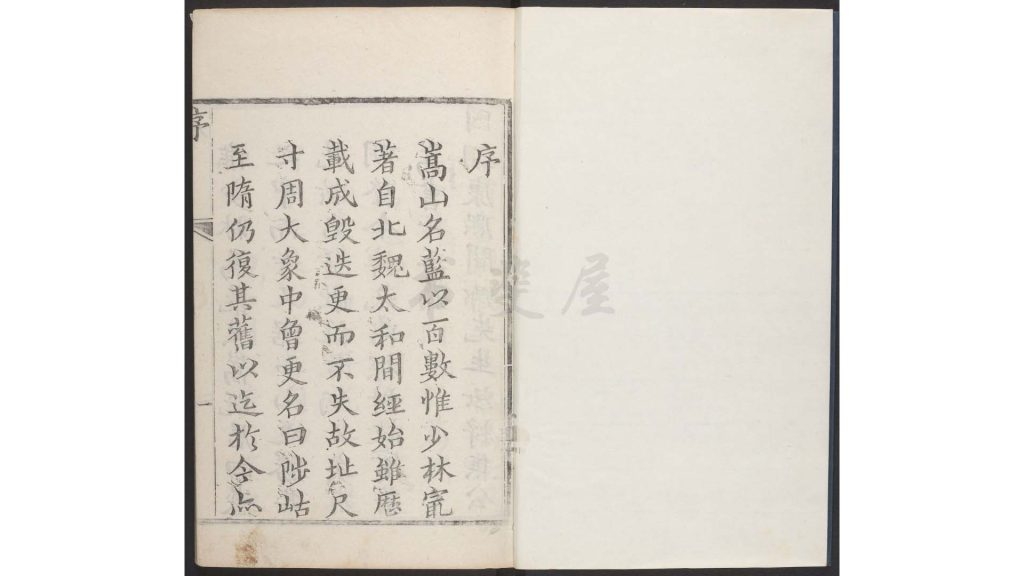 序
嵩山名藍以百數惟少林寔
著自北魏太和間經始雖歷
載成毀迭更而不失故址尺
寸周大象中曾更名曰陟岵
至隋仍復其舊以迄於今
序
一